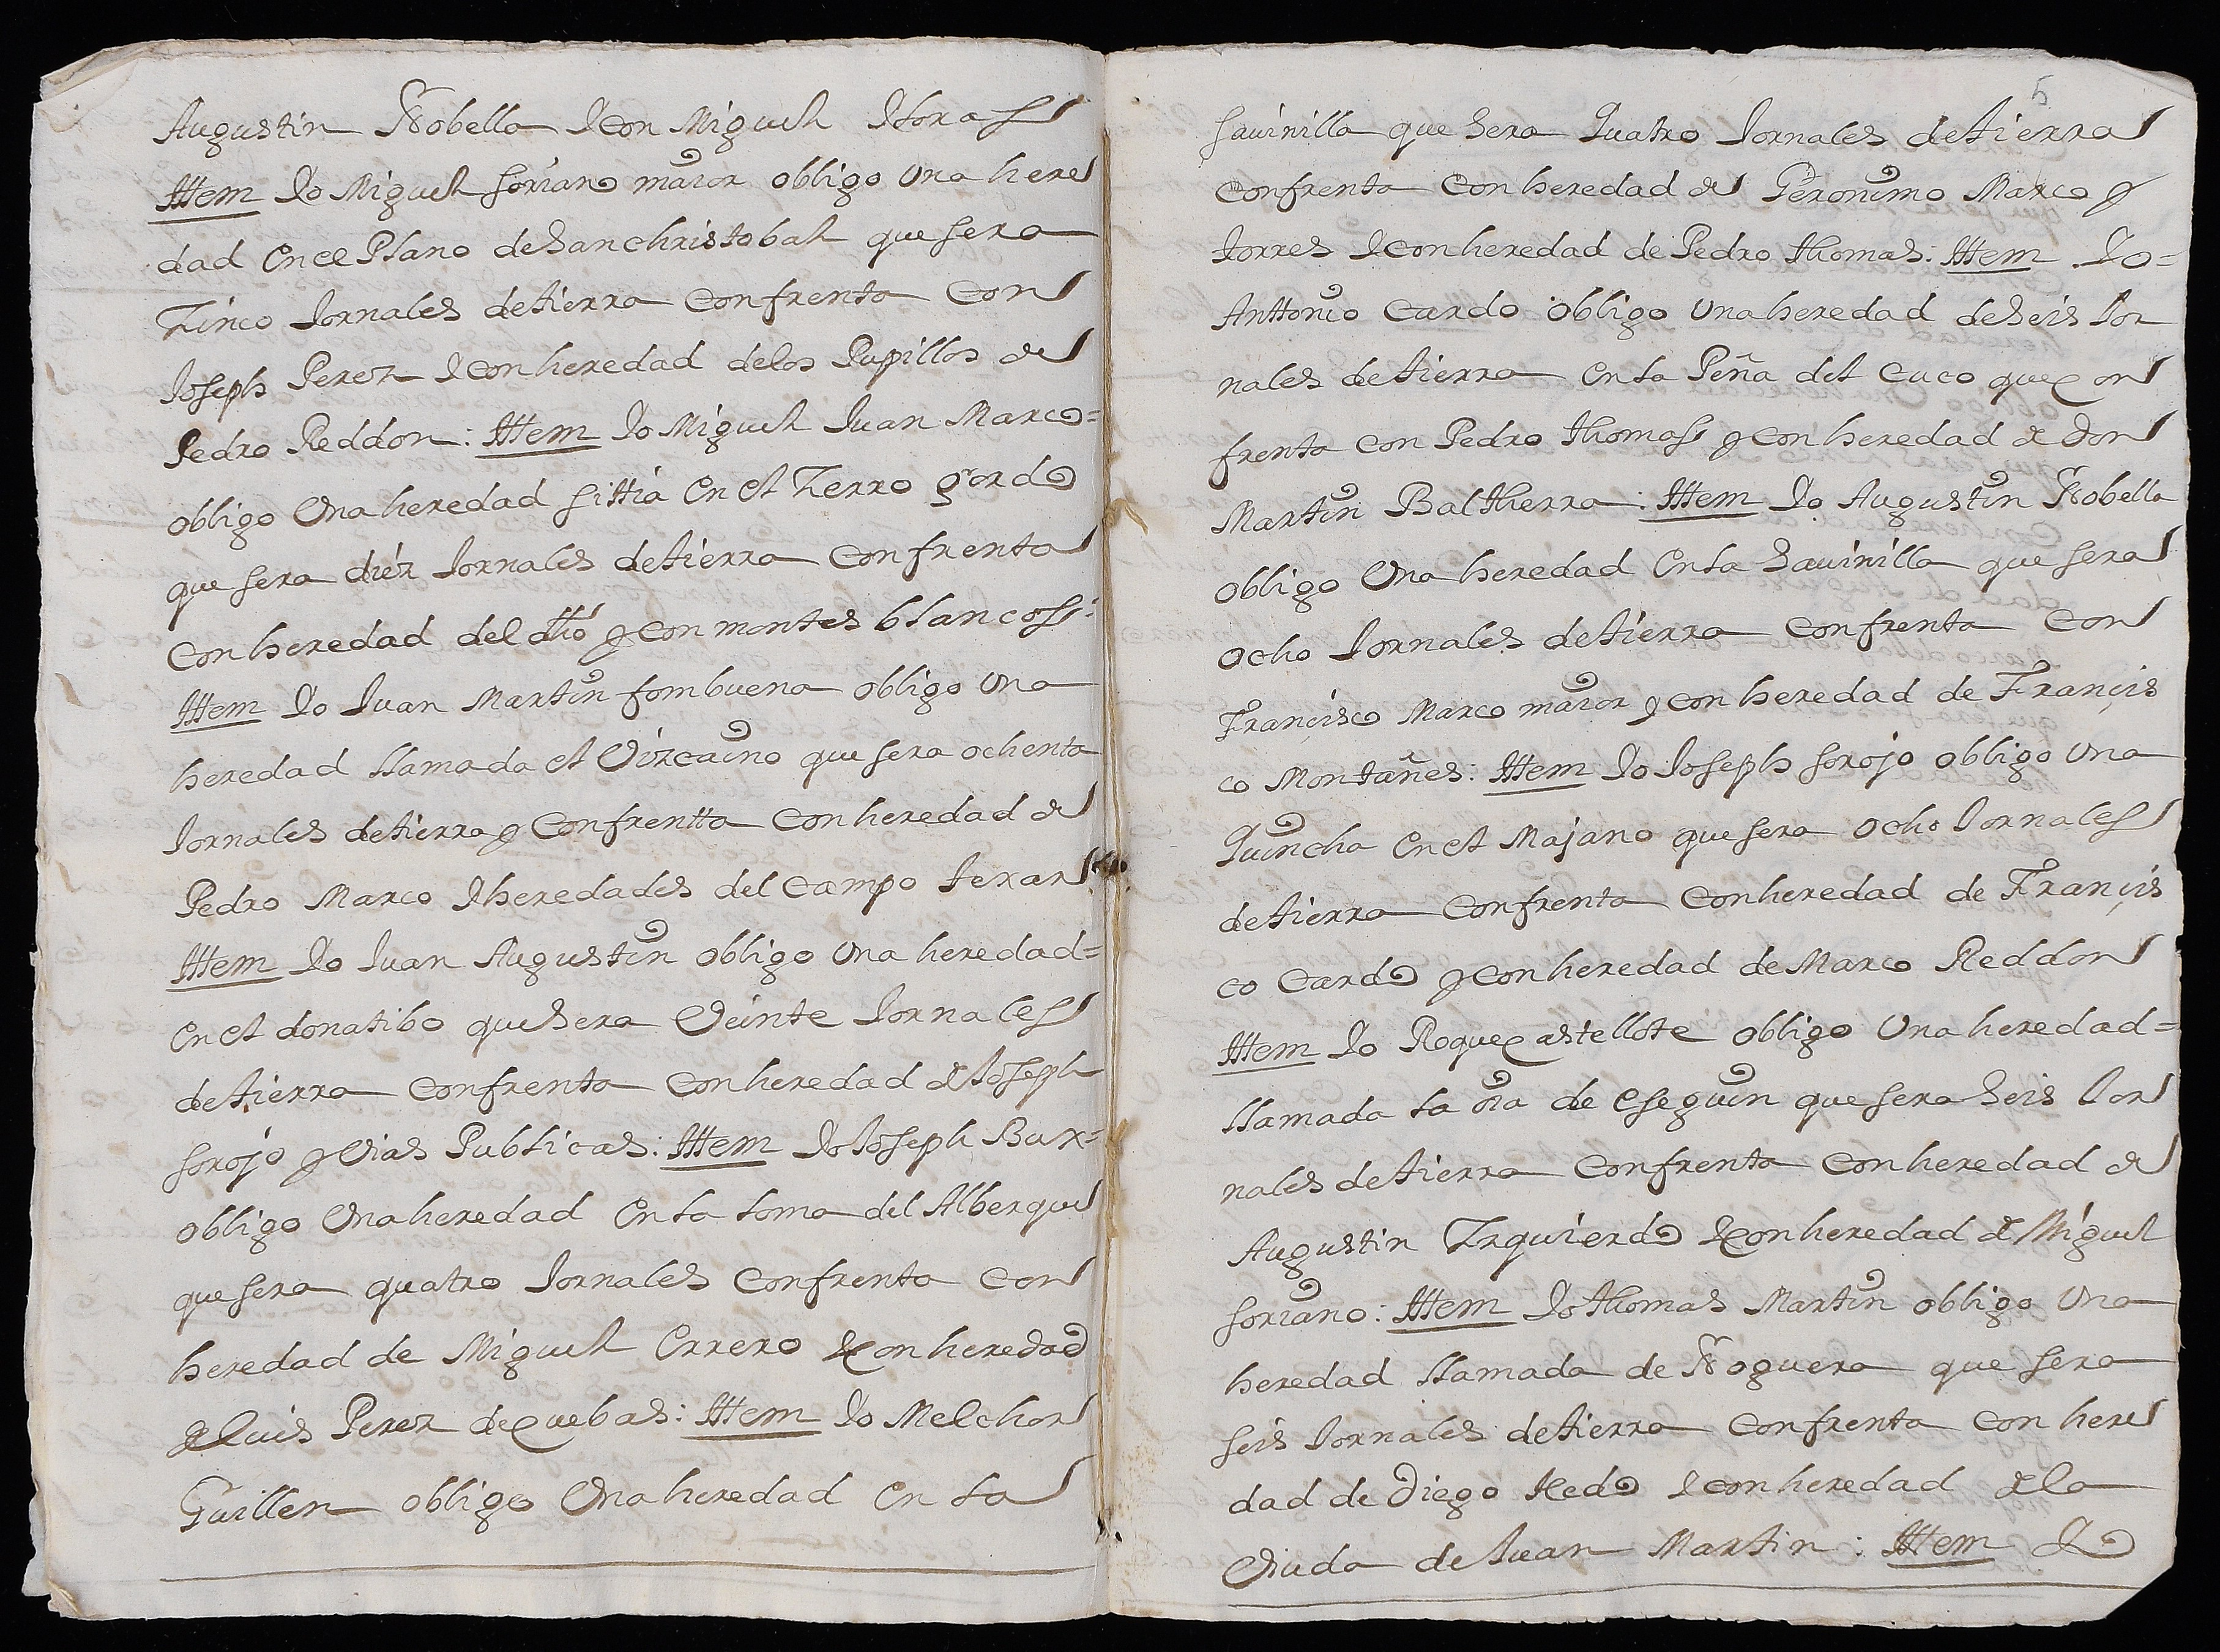 Augustin Nobella Y con Miguel Yloras
Ittem Yo Miguel Soriano maior obligo Una here
dad En ee Plano de San christobal que sera
Zinco Jornales de tierra Confrenta Con
Joseph Perez Y con heredad de los Pupillos de
Pedro Reddon: Ittem Yo Miguel Juan Marco=
obligo Una heredad sittia En el Zerro gordo
que sera diez Jornales de tierra Confrenta
Con heredad del dho y con montes blancos:
Ittem Yo Juan Martin fombuena obligo Una
heredad llamada el Vizcaino que sera ochenta
Jornales de tierra y Confrentta Con heredad de
Pedro Marco Y heredades del Campo texar
Ittem Yo Juan Augustin obligo Una heredad=
En el donatibo que sera Veinte Jornales
de tierra Confrenta Con heredad de Joseph
sorojo y Vias Publicas: Ittem Yo Joseph Bux=
obligo Una heredad En la toma del Alberque
que sera quatro Jornales Confrenta Con
heredad de Miguel Errero Y con heredad
de Luis Perez de Cuebas: Ittem Yo Melchor
Guillen obligo Una heredad En la
5
Savinilla que Sera Quatro Jornales de tierra
Confrenta Con heredad de Geronimo Marco y
torres Y con heredad de Pedro thomas: Ittem Yo=
Anttonio Cardo obligo Una heredad de Seis Jor
nales de tierra En la Peña del Cuco que Con
frenta Con Pedro thomas y con heredad de Don
Martin Balthierra: Ittem Yo Augustin Nobella
obligo Una heredad En la Savinilla que sera
ocho Jornales de tierra Confrenta Con
Françisco Marco maior y con heredad de Françis
co Montañes: Ittem Yo Joseph sorojo obligo Una
Quincha En el Majano que sera ocho Jornales
de tierra Confrenta Con heredad de Françis
co Cardo y con heredad de Marco Reddon
Ittem Yo Roque Castellote obligo Una heredad=
llamada la via de Eseguin que sera Seis Jor
nales de tierra Confrenta Con heredad de
Augustin Izquierdo Y con heredad de Miguel
soriano: Ittem Yo thomas Martin obligo Una
heredad llamada de Noguera que sera
seis Jornales de tierra Confrenta Con here
dad de Diego Hedo Y con heredad de la
Viuda de Juan Martin: Ittem Yo